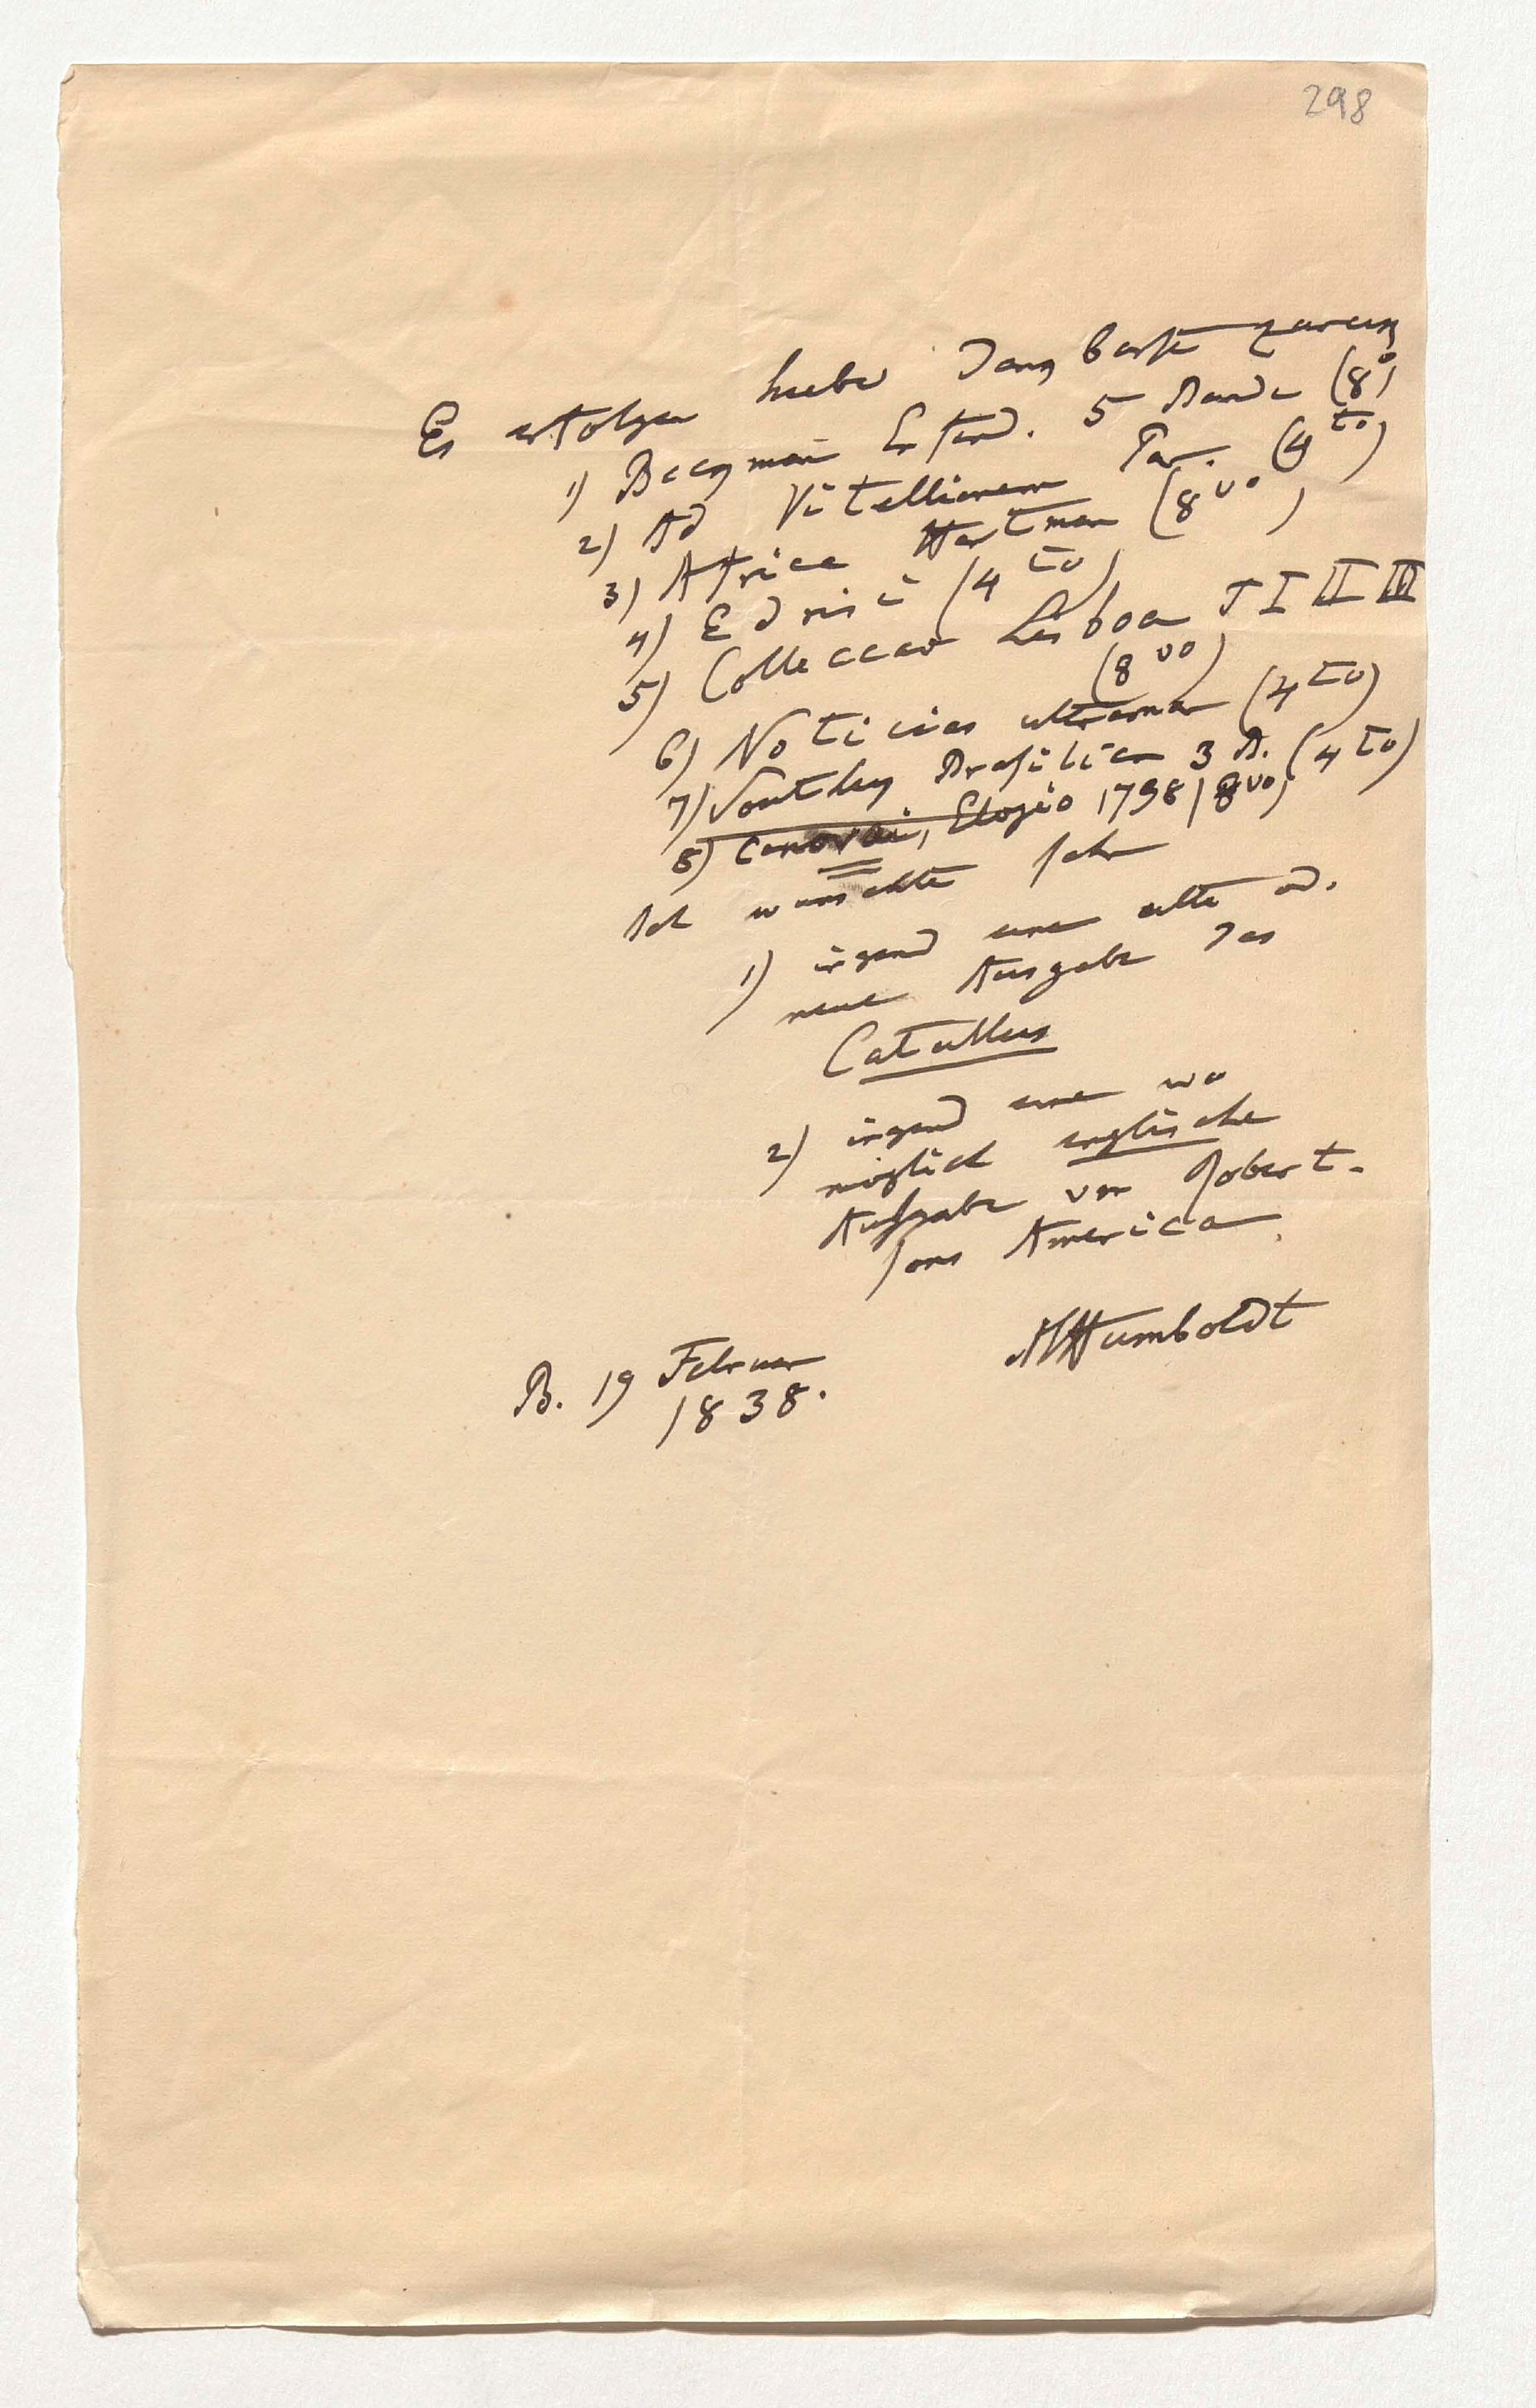 298
Es erfolgen hiebei dankbarst zurük
1) Beckman Erfind. 5 Bande (8°)
2) Ad Vitellionem Par. (4to)
3) Africa Hartman (8vo)
4) Edrisi (4to)
5) Colleccao Lisboa T I II III
(8vo)
6) Noticias ultramar (4to)
7) Southey Brasilien 3 B. (4to)
8) Canovai, Elogio 1798 (8vo)
Ich wunschte sehr
1) irgend eine alte od.
neue Ausgabe des
Catullus
2) irgend eine wo
möglich englische
Ausgabe von Robert-
sons America.
AHumboldt
B. 19 Februar
1838.